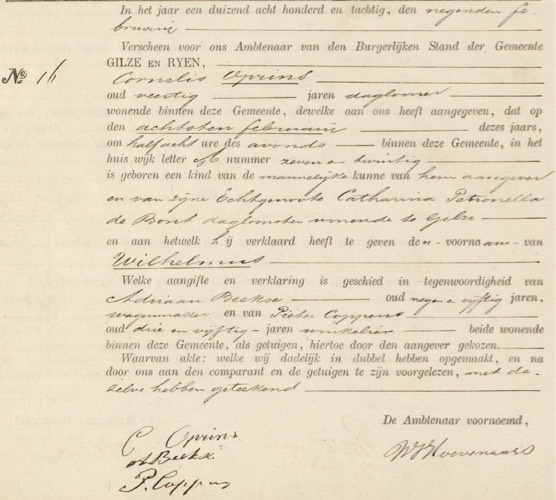 In het jaar een duizend acht honderd en tachtig, den negenden fe-
bruari
Verscheen voor ons Ambtenaar van den Burgerlijken Stand der Gemeente
GILZE EN RYEN,
No 16
Cornelis Oprins
oud veertig jaren daglooner
wonende binnen deze Gemeente, dewelke aan ons heeft aangegeven, dat op
den achtsten februarij dezes jaars,
om half acht ure des avonds binnen deze Gemeente, in het
huis wijk letter nummer zeven en twintig
is geboren een kind van de mannelijke kunne van hem aangever
en van zijne Echtgenoote Catharina Petronella
de Bont daglonster wonende te Gilze
en aan hetwelk hij verklaard heeft te geven den voornaam van
Wilhelmus
Welke aangifte en verklaring is geschied in tegenwoordigheid van
Adriaan Beekx oud negen e vijftig jaren,
wagenmaker en van Pieter Coppens
oud drie en vijftig jaren winkelier beide wonende
binnen deze Gemeente, als getuigen, hiertoe door den aangever gekozen.
Waarvan akte: welke wij dadelijk in dubbel hebben opgemaakt, en na
door ons aan den comparant en de getuigen te zijn voorgelezen, met de-
zelve hebben geteekend
De Ambtenaar voornoemd,
C Oprins
Beekx
P. Coppens
Hoevenaars